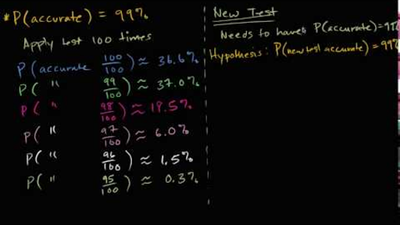 *P(accurate) = 99%
Apply test 100 times
P(accurate 100/100) ≈ 36.6%
P( " 99/100) ≈ 37.0%
P( " 98/100) ≈ 18.5%
P( " 97/100) ≈ 6.0%
P( " 96/100) ≈ 1.5%
P( " 95/100) ≈ 0.3%
New Test
Needs to have P(accurate)=99%
Hypothesis: P(new test accurate) = 99%